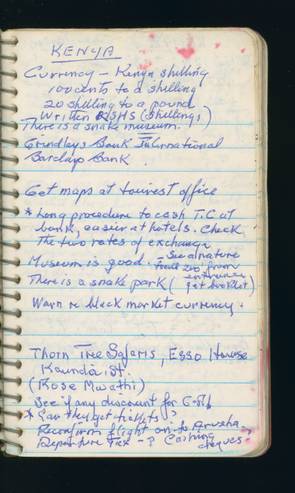 KENYA
Currency – Kenya shilling
100 cents to a shilling
20 shilling to a pound
Written KSHS (shillings)
There is a snake museum.
Grindlays Bank International
Barclays Bank.
Get maps at tourest office
* Long procedure to cash T.C at
bank, easier at hotels. Check
the two rates of exchange
Museum is good. - See nature
trail 200 from
There is a snake park ( entrance
get booklet)
Warn re black market currency.
Thorn Tree Safaris, Esso House
Kaunda St.
(Rose Mwathi)
See if any discount for
* Can they get tickets?
Reconfirm flight on to Arusha.
Departure Tax - ? Cashing
cheques